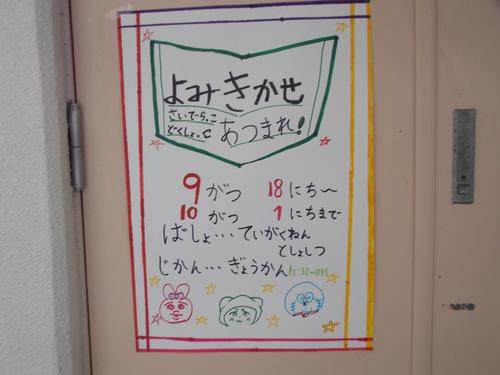 よみきかせ
さいてーらっこ
どくしょって
あつまれ!
9がつ 18にち〜
10がつ 1にちまで
ばしょ…ていがくねん
としょしつ
じかん…ぎょうかん